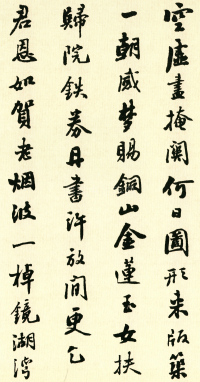 空虛盡掩關何日圖形來版築
一朝感夢賜銅山金蓮玉女扶
歸院鉄券丹書許放閒更乞
君恩如賀老烟波一棹鏡湖灣